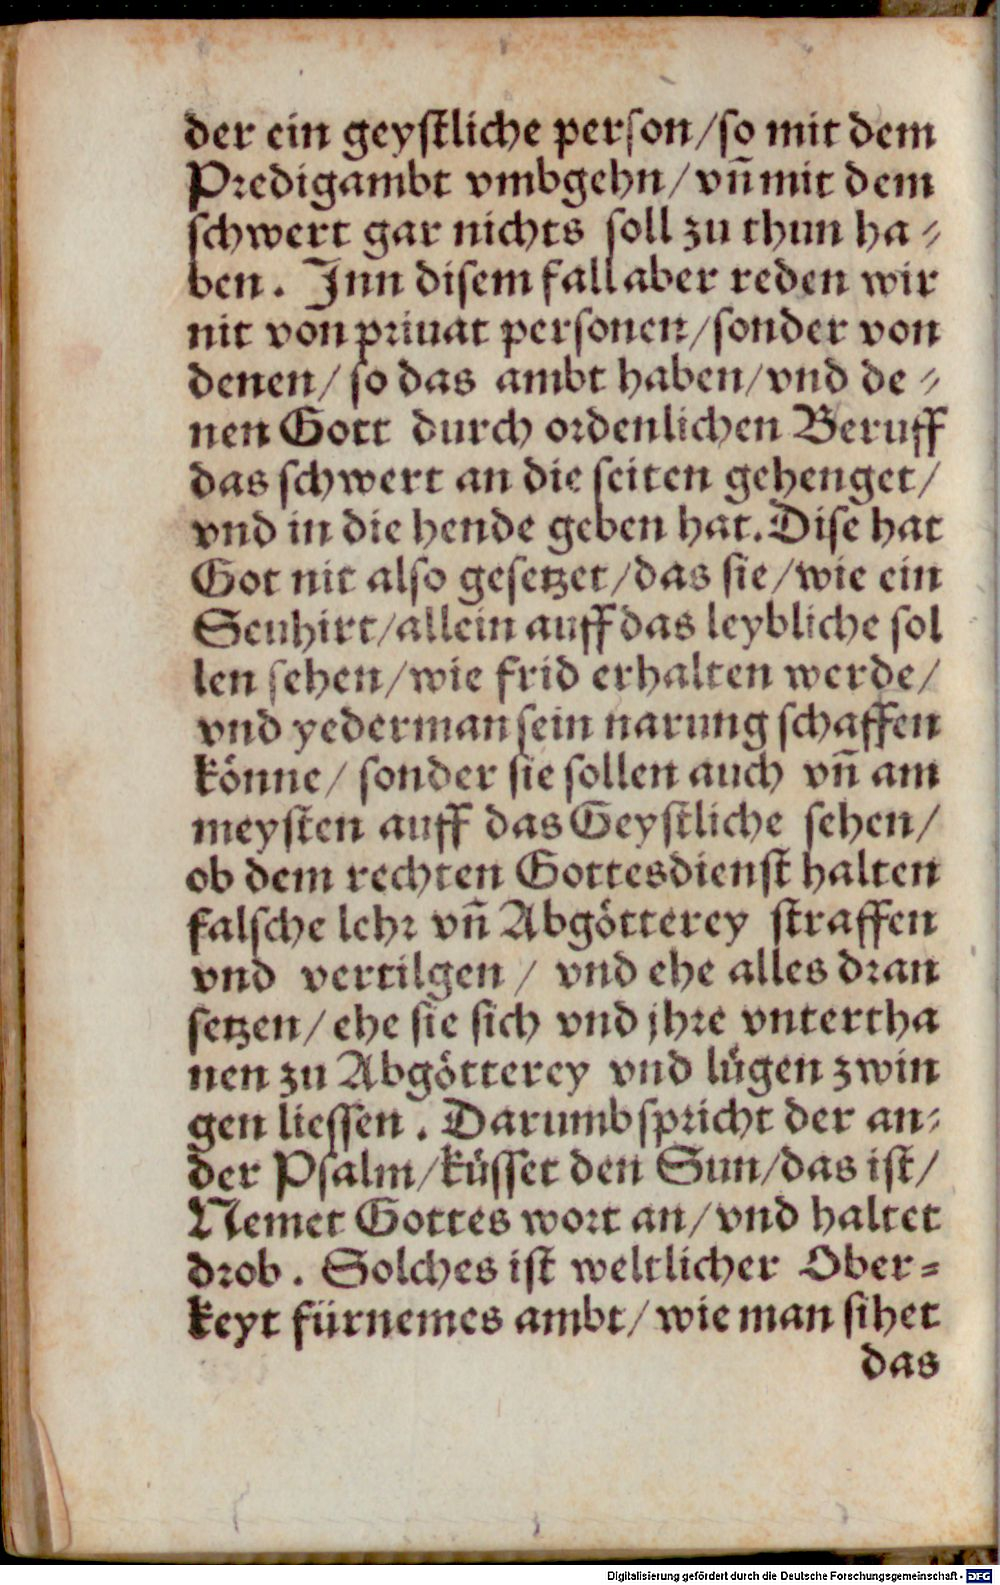 der ein geystliche person/so mit dem
Predigambt vmbgehn/vn̄ mit dem
schwert gar nichts soll zu thun ha⸗
ben. Jnn disem fall aber reden wir
nit von priuat personen/sonder von
denen/ so das ambt haben/vnd de⸗
nen Gott durch ordenlichen Beruff
das schwert an die seiten gehenget/
vnd in die hende geben hat. Dise hat
Got nit also gesetzet/das sie/wie ein
Seuhirt/allein auff das leybliche sol
len sehen/wie frid erhalten werde/
vnd yederman sein narung schaffen
könne/ sonder sie sollen auch vn̄ am
meysten auff das Geystliche sehen/
ob dem rechten Gottesdienst halten
falsche lehr vn̄ Abgötterey straffen
vnd vertilgen / vnd ehe alles dran
setzen/ ehe sie sich vnd jhre vntertha
nen zu Abgötterey vnd lügen zwin
gen liessen. Darumb spricht der an⸗
der Psalm/küsset den Sun/das ist/
Nemet Gottes wort an/vnd haltet
drob. Solches ist weltlicher Ober⸗
keyt fürnemes ambt/ wie man sihet
das
Digitalisierung gefördert durch die Deutsche Forschungsgemeinschaft - DFG